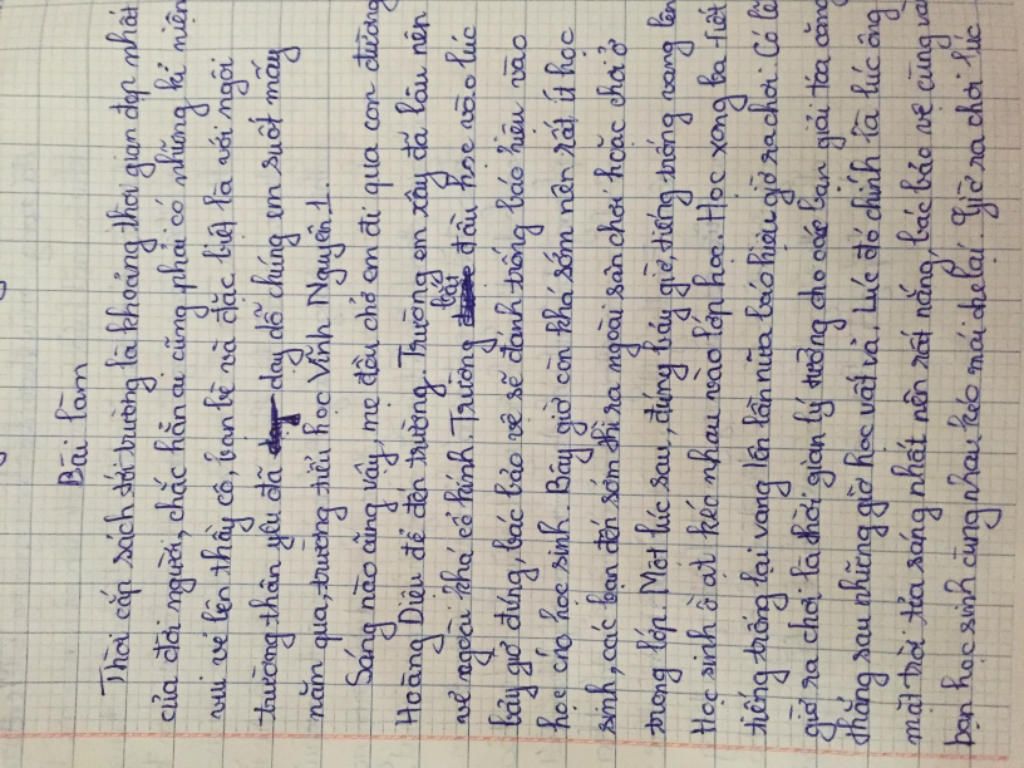 Bài làm
Thời cắp sách tới trường là khoảng thời gian đẹp nhất
của đời người, chắc hẳn ai cũng phải có những kỉ niên
vui vẻ bên thầy cô, bạn bè và đặc biệt là với ngôi
trường thân yêu đã dạy dỗ chúng em suốt mấy
năm qua, trường tiểu học Vĩnh Nguyên 1.
Sáng nào cũng vậy, mẹ đều chở em đi qua con đường
Hoàng Diệu để đến trường. Trường em xây đã lâu nên
vẻ ngoài khá cổ kính. Trường bắt đầu học vào lúc
bảy giờ đúng, bác bảo vệ sẽ đánh trống báo hiệu vào
học cho học sinh. Bây giờ còn khá sớm nên rất ít học
sinh, các bạn đến sớm thì ra ngoài sân chơi hoặc chơi ở
trong lớp. Một lúc sau, đúng bảy giờ, tiếng trống vang lên
Học sinh ồ ạt kéo nhau vào lớp học. Học xong ba tiết
tiếng trống lại vang lên lần nữa báo hiệu giờ ra chơi. Có lẽ
giờ ra chơi là thời gian lý tưởng cho các bạn giải tỏa căng
thẳng sau những giờ học vất vả. Lúc đó chính là lúc ông
mặt trời tỏa sáng nhất nên rất nắng, bác bảo vệ cùng
bạn học sinh cùng nhau kéo mái che lại. Giờ ra chơi lúc